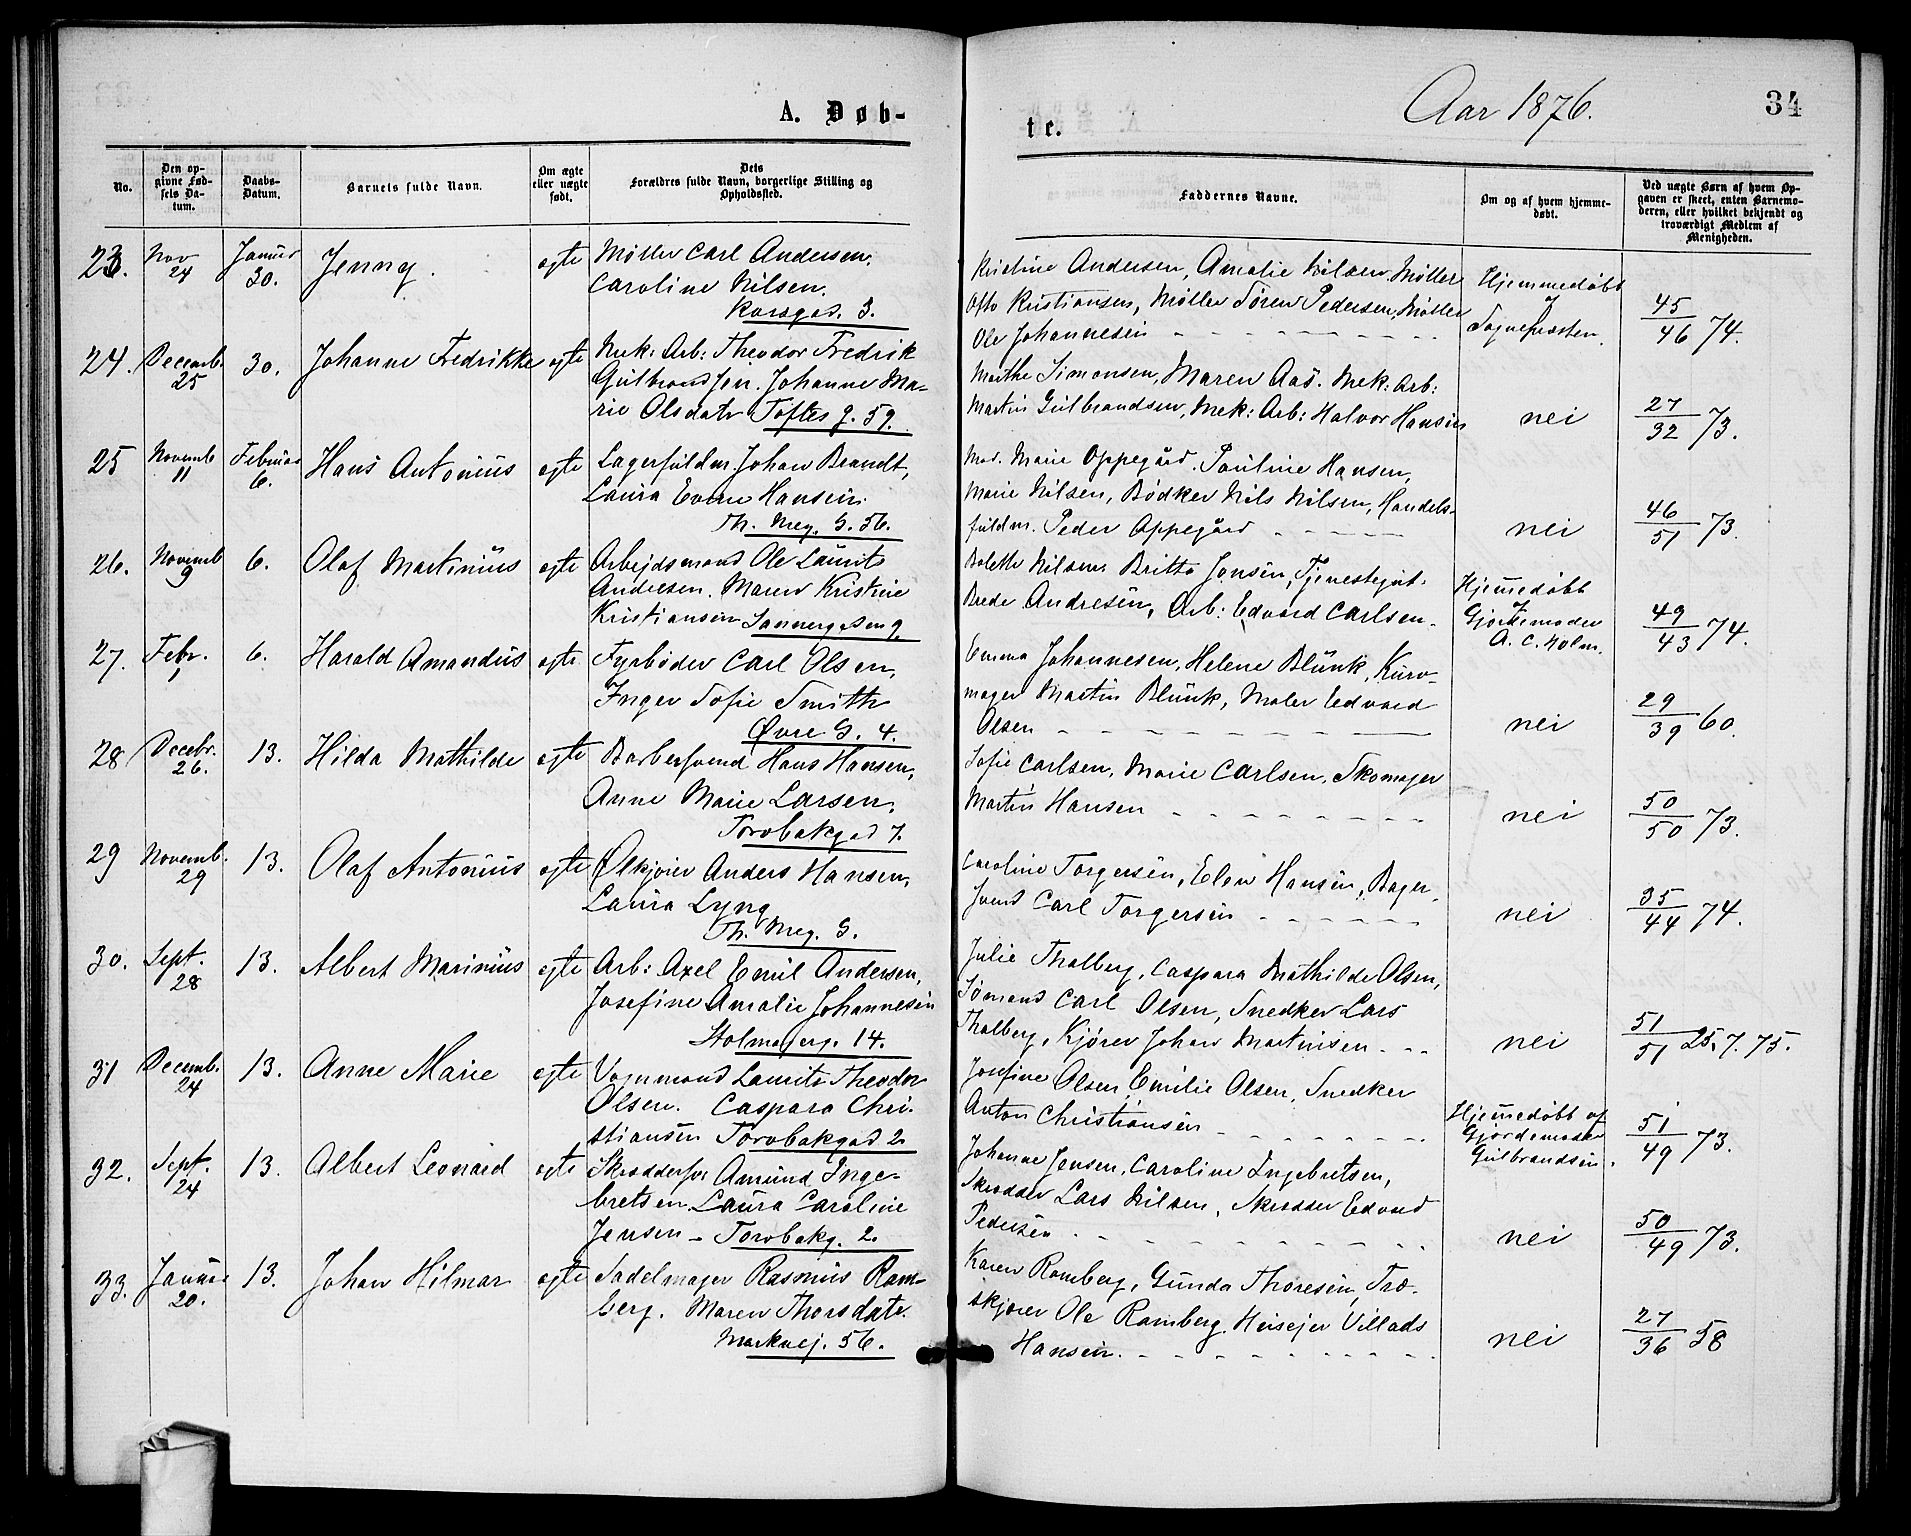 A. Døb-
te.
Aar 1876.
34
No.
Den op-
givne Fød-
sels Da-
tum.
Daabs-
Datum.
Barnets fulde Navn.
Om ægte
eller uægte
født.
Dets
Forældres fulde Navn, borgerlige Stilling og
Opholdssted.
Faddernes Navne.
Om og af hvem hjemme-
døbt.
Ved uægte Børn af hvem Op-
gaven er skeet, enten Barnemo-
deren, eller hvilket bekjendt og
troværdigt Medlem af
Menigheden.
23. Nov 24 Januar 30. Jenny. egte Møller Carl Andersen.
Caroline Nilsen.
Korsgad. 3.
Kristine Andersen, Amalie Nilsen, Møller
Otto Kristiansen, Møller Søren Pedersen, Møller
Ole Johannesen
Hjemmedøbt
af
Sognepresten.
45/46 74.
24. Decemb. 25 30. Johanne Fredrikke egte Mek: Arb: Theodor Fredrik
Gulbrandsen. Johanne Ma-
rie Olsdatr Toftes g. 59.
Marthe Simonsen, Maren Aas. Mek: Arb:
Martin Gulbrandsen, Mek: Arb: Halvor Hansen
nei
27/32 73.
25 Novemb 11 Februar 6. Hans Antonius egte Lagerfuldm. Johan Brandt,
Laura Evine Hansen.
Th. Mey. G. 56.
Mad. Marie Oppegård. Pauline Hansen,
Marie Nilsen, Bødker Nils Nilsen, Handels-
fuldm. Peder Oppegård
nei
46/51 73.
26. Novemb 9 6. Olaf Martinius egte Arbejdsmand Ole Laurits
Andresen. Maren Kristine
Kristiansen Sannergaden 9
Bolette Nilsen. Britta Jonsen, Tjenestegut.
Brede Andresen, Arb: Edvard Carlsen.
Hjemmedøbt
af
Gjordemoder
A. C. Holm.
49/43 74.
27. Febr. 1 6. Harald Amandus egte Fyrbøder Carl Olsen,
Inger Sofie Smith
Øvre G. 4.
Emma Johannesen, Helene Blunk, Kurv-
mager Martin Blunk, Maler Edvard
Olsen
nei
29/39 60.
28 Decebr. 26. 13. Hilda Mathilde egte Barbersvend Hans Hansen,
Anne Marie Larsen,
Torvbakgad 7.
Sofie Carlsen, Marie Carlsen, Skomager
Martin Hansen
nei
50/50 73.
29 Novemb. 29 13. Olaf Antonius egte Ølkjører Anders Hansen,
Laura Lyng
Th. Mey. G.
Caroline Torgersen, Elen Hansen, Bager-
svend Carl Torgersen
nei
35/44 74.
30. Sept. 28 13. Albert Marinius egte Arb: Axel Emil Andersen,
Josefine Amalie Johannesen
Stolmagerg. 14.
Julie Thalberg, Caspara Mathilde Olsen,
Sømand Carl Olsen, Snedker Lars
Thalberg, Kjører Johan Martinsen
nei
51/51 25.7.75.
31 Decemb. 24 13. Anne Marie egte Vognmand Laurits Theodor
Olsen. Caspara Chri-
stiansen Torvbakgad 2
Josefine Olsen, Emilie Olsen, Snedker
Anton Christiansen
Hjemmedøbt af
Gjordemoder
Gulbrandsen.
51/49 73.
32. Sept. 24 13. Albert Leonard egte Skrædderfor Amund Inge-
bretsen. Laura Caroline
Jensen - Torvbakg. 2.
Johanne Jensen, Caroline Ingebretsen,
Skrædder Lars Nilsen, Skrædder Edvard
Pedersen
nei
50/49 73.
33. Januar 20. 13. Johan Hilmar egte Sadelmager Rasmus Ram-
berg. Maren Thorsdatr.
Markvej. 56.
Karen Ramberg, Gunda Thoresen, Træ-
skjærer Ole Ramberg. Husejer Villads
Hansen.
nei
27/36 58